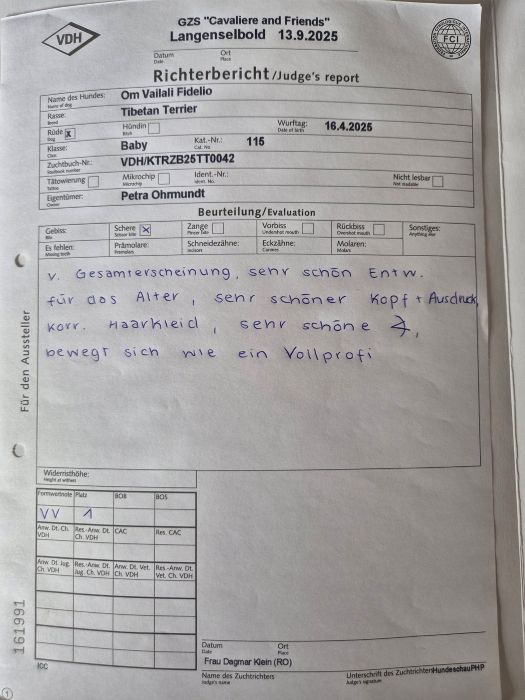 VDH
GZS "Cavaliere and Friends"
Langenselbold 13.9.2025
FCI
Datum Ort
Date Place
Richterbericht/Judge's report
Name des Hundes: Om Vailali Fidelio
Name of dog
Rasse: Tibetan Terrier
Breed
Rüde x Hündin Wurftag: 16.4.2025
Dog Bitch Date of birth
Klasse: Baby Kat.-Nr.: 115
Class Cat. No
Zuchtbuch-Nr.: VDH/KTRZB25TT0042
Studbook number
Tätowierung Mikrochip Ident.-Nr.: Nicht lesbar
Tattoo Microchip Ident. No. Not readable
Eigentümer: Petra Ohrmundt
Owner
Beurteilung/Evaluation
Gebiss: Schere x Zange Vorbiss Rückbiss Sonstiges:
Bite Scissor bite Pincer bite Undershot mouth Overshot mouth Anything else
Es fehlen: Prämolare: Schneidezähne: Eckzähne: Molaren:
Missing teeth Premolars Incisors Canines Molars
v. Gesamterscheinung, sehr schön Entw.
für das Alter, sehr schöner Kopf + Ausdruck,
korr. Haarkleid, sehr schöne
bewegt sich wie ein Vollprofi
Für den Aussteller
161991
Widerristhöhe:
Height at withers
Formwertnote Platz BOB BOS
VV 1
Anw. Dt. Ch. VDH Res.-Anw. Dt. Ch. VDH CAC Res. CAC
Anw. Dt. Jug. Ch. VDH Res.-Anw. Dt. Jug. Ch. VDH Anw. Dt. Vet. Ch. VDH Res.-Anw. Dt. Vet. Ch. VDH
Datum Ort
Date Place
Frau Dagmar Klein (RO)
Name des Zuchtrichters Unterschrift des Zuchtrichters HundeschauPHP
Judge's name Judge's signature